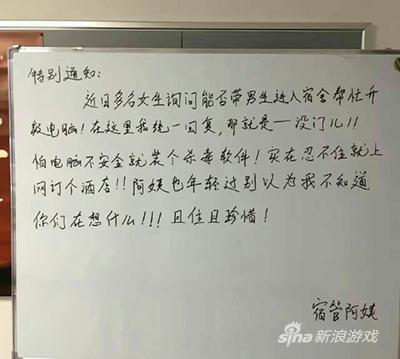 特别通知:
近日多名女生询问能否带男生进入宿舍帮忙升
级电脑!在这里我统一回复,那就是——没门儿!!
怕电脑不安全就装个杀毒软件!实在忍不住就上
网订个酒店!!阿姨也年轻过别以为我不知道
你们在想什么!!!且住且珍惜!
宿管阿姨
sina新浪游戏